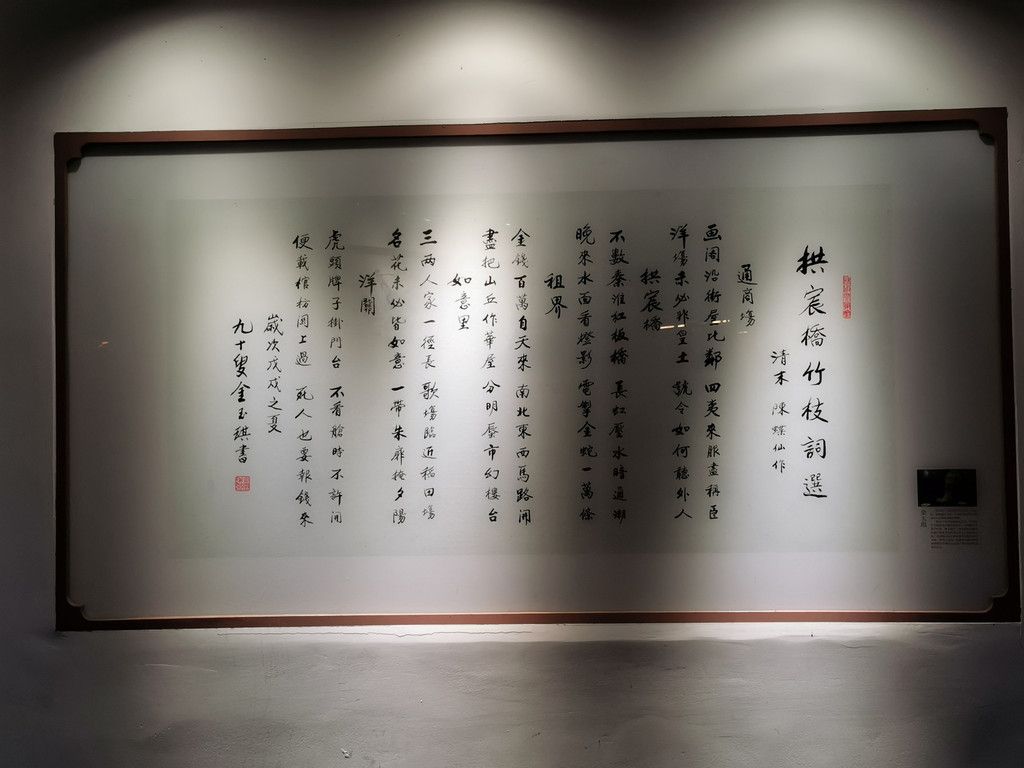 拱宸橋竹枝詞選
清末 陳蝶仙作
通商場
画閣沿街屋比鄰 四夷來服盡稱臣
洋場未必非皇土 號令如何聽外人
拱宸橋
不數秦淮紅板橋 長虹壓水暗通潮
晚來水面看燈影 電掣金蛇一萬條
租界
金錢百萬自天來 南北東西馬路開
盡把山丘作華屋 分明蜃市幻樓台
如意里
三兩人家一徑長 歌場臨近稻田場
名花未必皆如意 一帶朱扉掩夕陽
洋關
虎頭牌子掛門台 不看艙時不許開
便載棺枋關上過 死人也要報錢來
歲次戊戌之夏
九十叟金玉琪書